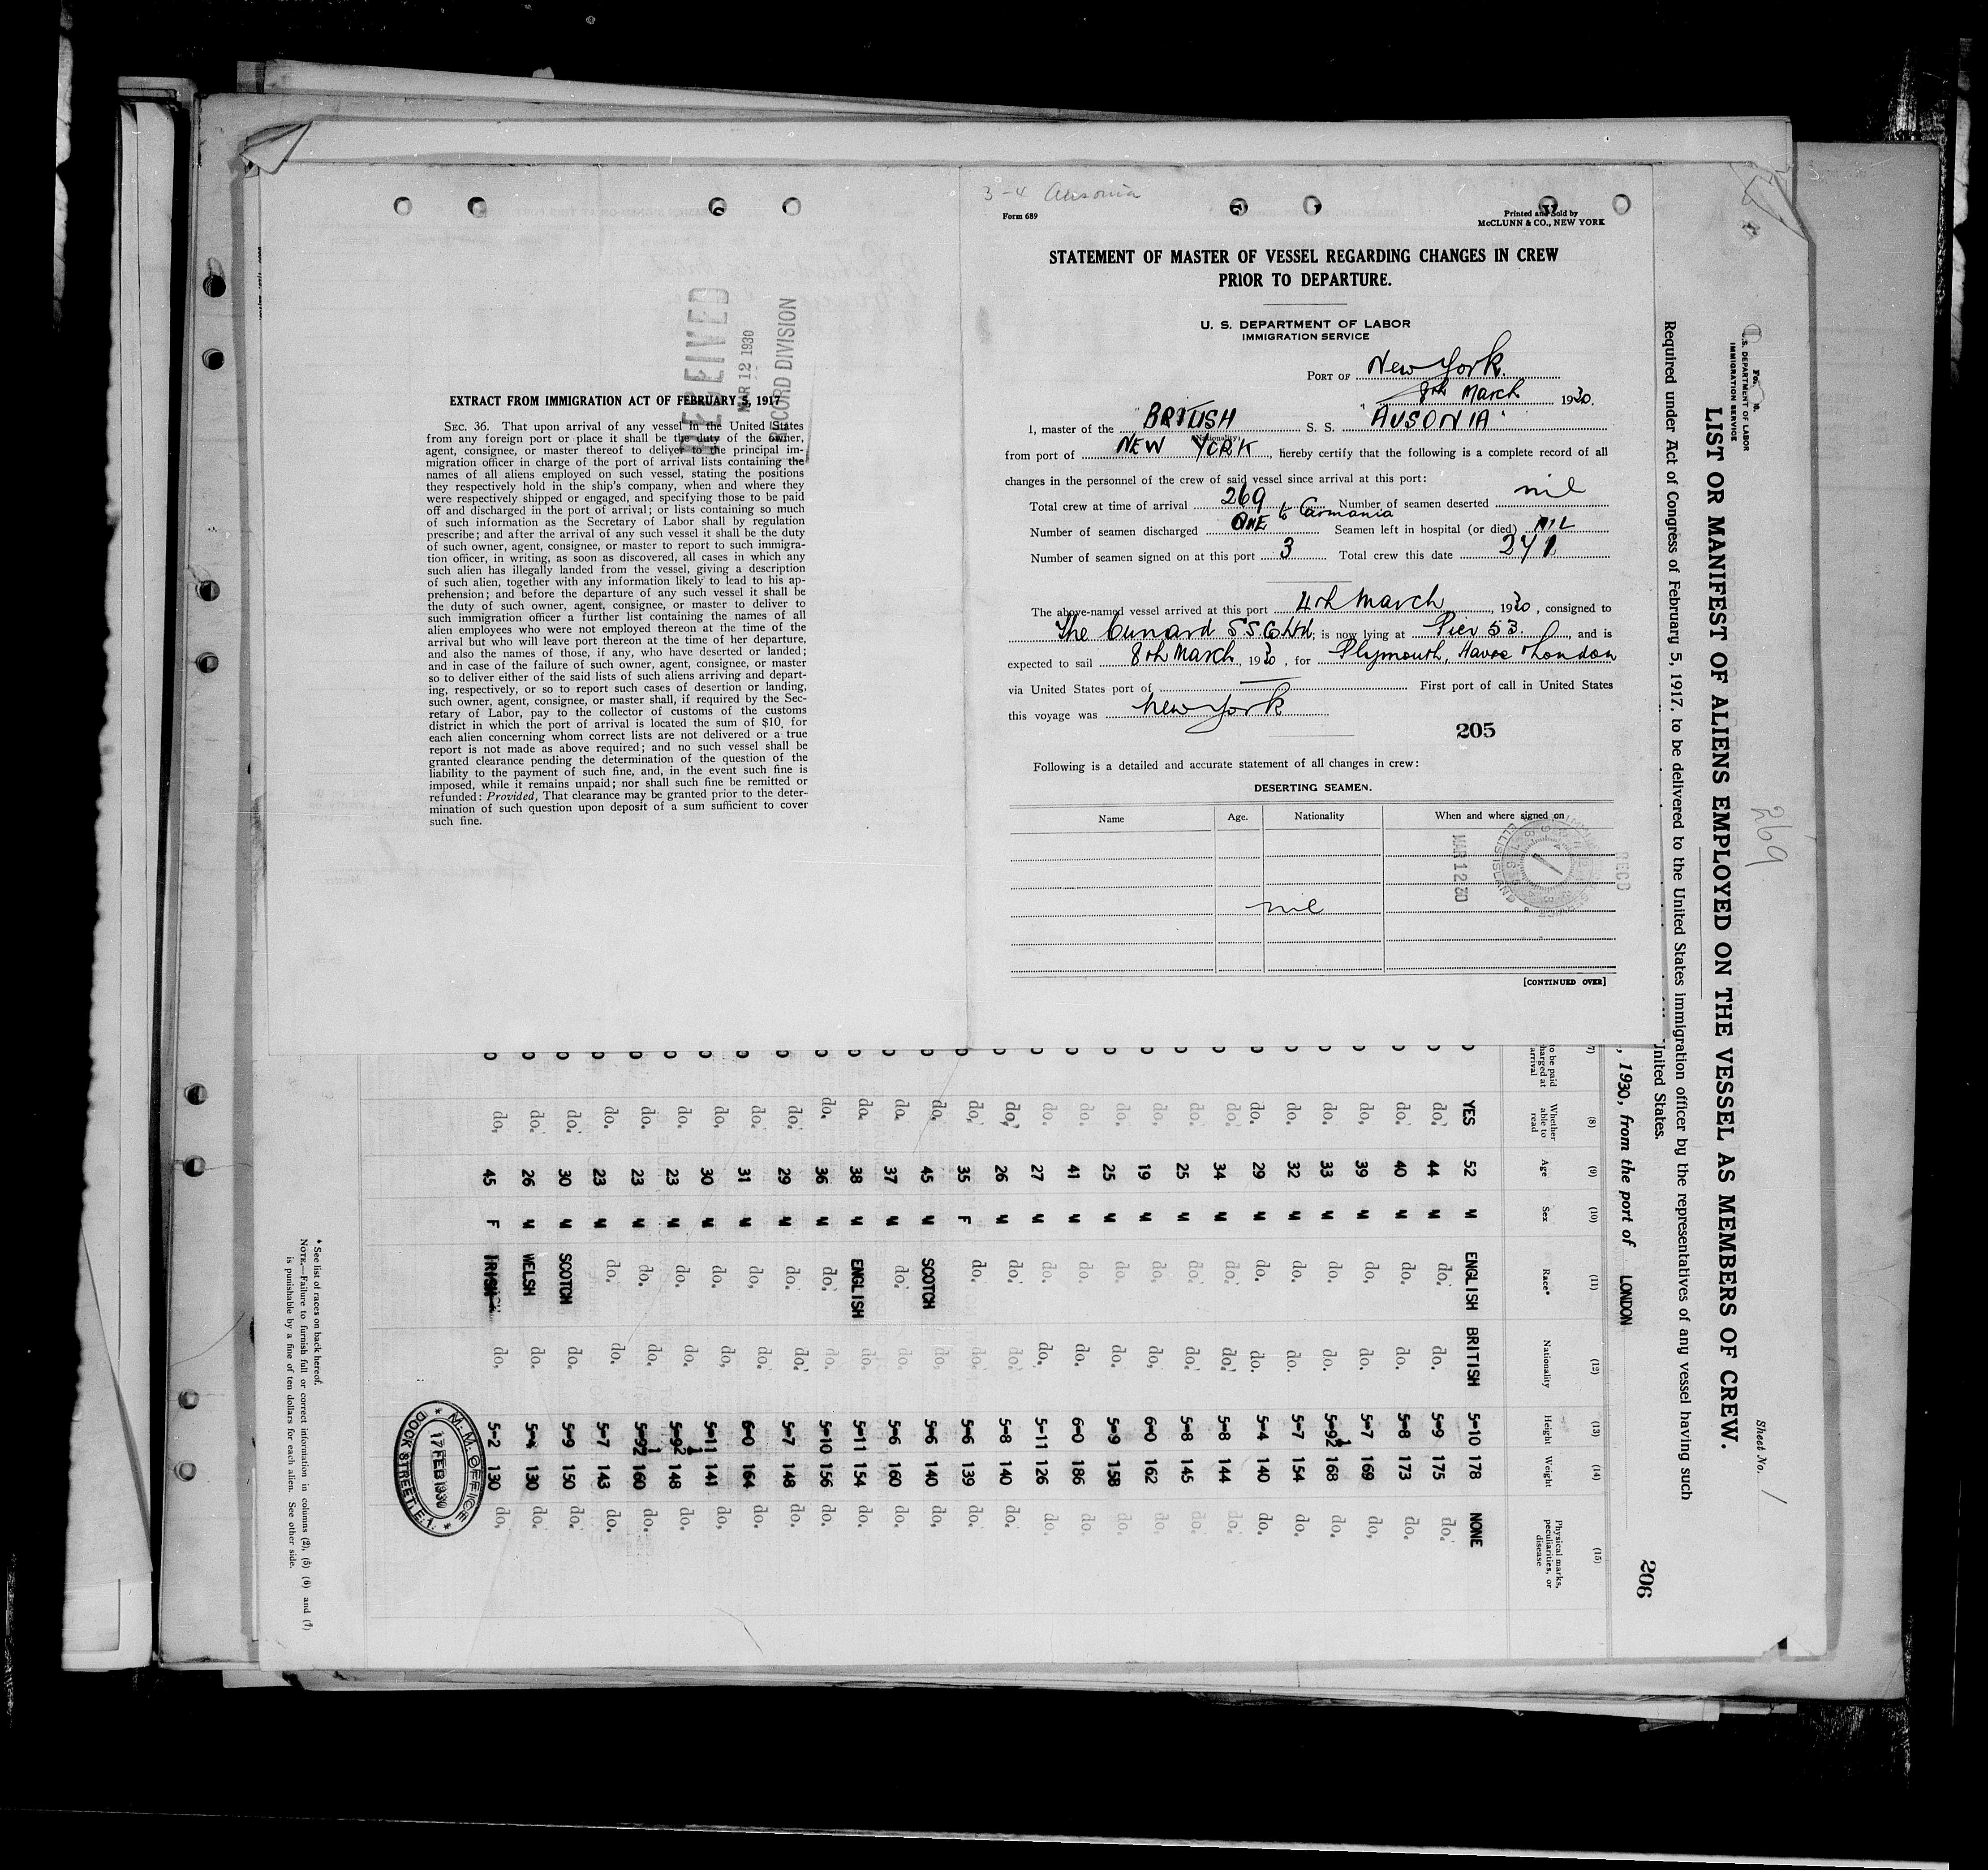 EXTRACT FROM IMMIGRATION ACT OF FEBRUARY 5, 1917
SEC. 36. That upon arrival of any vessel in the United States
from any foreign port or place it shall be the duty of the owner,
agent, consignee, or master thereof to deliver to the principal im-
migration officer in charge of the port of arrival lists containing the
names of all aliens employed on such vessel, stating the positions
they respectively hold in the ship's company, when and where they
were respectively shipped or engaged, and specifying those to be paid
off and discharged in the port of arrival; or lists containing so much
of such information as the Secretary of Labor shall by regulation
prescribe; and after the arrival of any such vessel it shall be the duty
of such owner, agent, consignee, or master to report to such immigra-
tion officer, in writing, as soon as discovered, all cases in which any
such alien has illegally landed from the vessel, giving a description
of such alien, together with any information likely to lead to his ap-
prehension; and before the departure of any such vessel it shall be
the duty of such owner, agent, consignee, or master to deliver to
such immigration officer a further list containing the names of all
alien employees who were not employed thereon at the time of the
arrival but who will leave port thereon at the time of her departure,
and also the names of those, if any, who have deserted or landed;
and in case of the failure of such owner, agent, consignee, or master
so to deliver either of the said lists of such aliens arriving and depart-
ing, respectively, or so to report such cases of desertion or landing,
such owner, agent, consignee, or master shall, if required by the Sec-
retary of Labor, pay to the collector of customs of the customs
district in which the port of arrival is located the sum of $10 for
each alien concerning whom correct lists are not delivered or a true
report is not made as above required; and no such vessel shall be
granted clearance pending the determination of the question of the
liability to the payment of such fine, and, in the event such fine is
imposed, while it remains unpaid; nor shall such fine be remitted or
refunded: Provided, That clearance may be granted prior to the deter-
mination of such question upon deposit of a sum sufficient to cover
such fine.
RECEIVED
MAR 12 1930
RECORD DIVISION
3-4 Ausonia
Form 689
Printed and Sold by
McCLUNN & CO., NEW YORK
STATEMENT OF MASTER OF VESSEL REGARDING CHANGES IN CREW
PRIOR TO DEPARTURE.
U. S. DEPARTMENT OF LABOR
IMMIGRATION SERVICE
PORT OF New York.
8th March 1930.
I, master of the BRITISH S. S. "AUSONIA"
(Nationality)
from port of NEW YORK, hereby certify that the following is a complete record of all
changes in the personnel of the crew of said vessel since arrival at this port:
Total crew at time of arrival 269 Number of seamen deserted nil
Number of seamen discharged ONE to Carmania Seamen left in hospital (or died) NIL
Number of seamen signed on at this port 3 Total crew this date 271
The above-named vessel arrived at this port 4th March, 1930, consigned to
The Cunard SS Co Ltd, is now lying at Pier 53., and is
expected to sail 8th March, 1930, for Plymouth, Havre & London
via United States port of First port of call in United States
this voyage was New York
205
Following is a detailed and accurate statement of all changes in crew:
DESERTING SEAMEN.
Name Age. Nationality When and where signed on
MAR 12 30
RECD
nil
[CONTINUED OVER]
U.S. DEPARTMENT OF LABOR
IMMIGRATION SERVICE
269
Sheet No. 1
LIST OR MANIFEST OF ALIENS EMPLOYED ON THE VESSEL AS MEMBERS OF CREW.
Required under Act of Congress of February 5, 1917, to be delivered to the United States immigration officer by the representatives of any vessel having such
United States.
, 1930, from the port of LONDON
206
(7) (8) (9) (10) (11) (12) (13) (14) (15)
to be paid
arrival
Whether able to read Age Sex Race* Nationality Height Weight Physical marks, peculiarities, or disease
YES 52 M ENGLISH BRITISH 5=10 178 NONE
do. 44 M do. do. 5=9 175 do.
do. 40 M do. do. 5=8 173 do.
do. 39 M do. do. 5=7 169 do.
do. 33 M do. do. 5=9½ 168 do.
do. 32 M do. do. 5=7 154 do.
do. 29 M do. do. 5=4 140 do.
do. 34 M do. do. 5=8 144 do.
do. 25 M do. do. 5=8 145 do.
do. 19 M do. do. 6=0 162 do.
do. 25 M do. do. 5=9 158 do.
do. 41 M do. do. 6=0 186 do.
do. 27 M do. do. 5=11 126 do.
do. 26 M do. do. 5=8 140 do.
do. 35 F do. do. 5=6 139 do.
do. 45 M SCOTCH do. 5=6 140 do.
do. 37 M do. do. 5=6 160 do.
do. 38 M ENGLISH do. 5=11 154 do.
do. 36 M do. do. 5=10 156 do.
do. 29 M do. do. 5=7 148 do.
do. 31 M do. do. 6=0 164 do.
do. 30 M do. do. 5=11 141 do.
do. 23 M do. do. 5=9½ 148 do.
do. 23 M do. do. 5=9½ 160 do.
do. 23 M do. do. 5=7 143 do.
do. 30 M SCOTCH do. 5=9 150 do.
do. 26 M WELSH do. 5=4 130 do.
do. 45 F IRISH do. 5=2 130 do.
M. M. OFFICE
17 FEB 1930
DOCK STREET. E.1.
* See list of races on back hereof.
NOTE.—Failure to furnish full or correct information in columns (2), (5) (6) and (7)
is punishable by a fine of ten dollars for each alien. See other side.